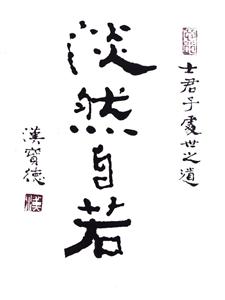 士君子處世之道
淡然自若
漢寶德
漢